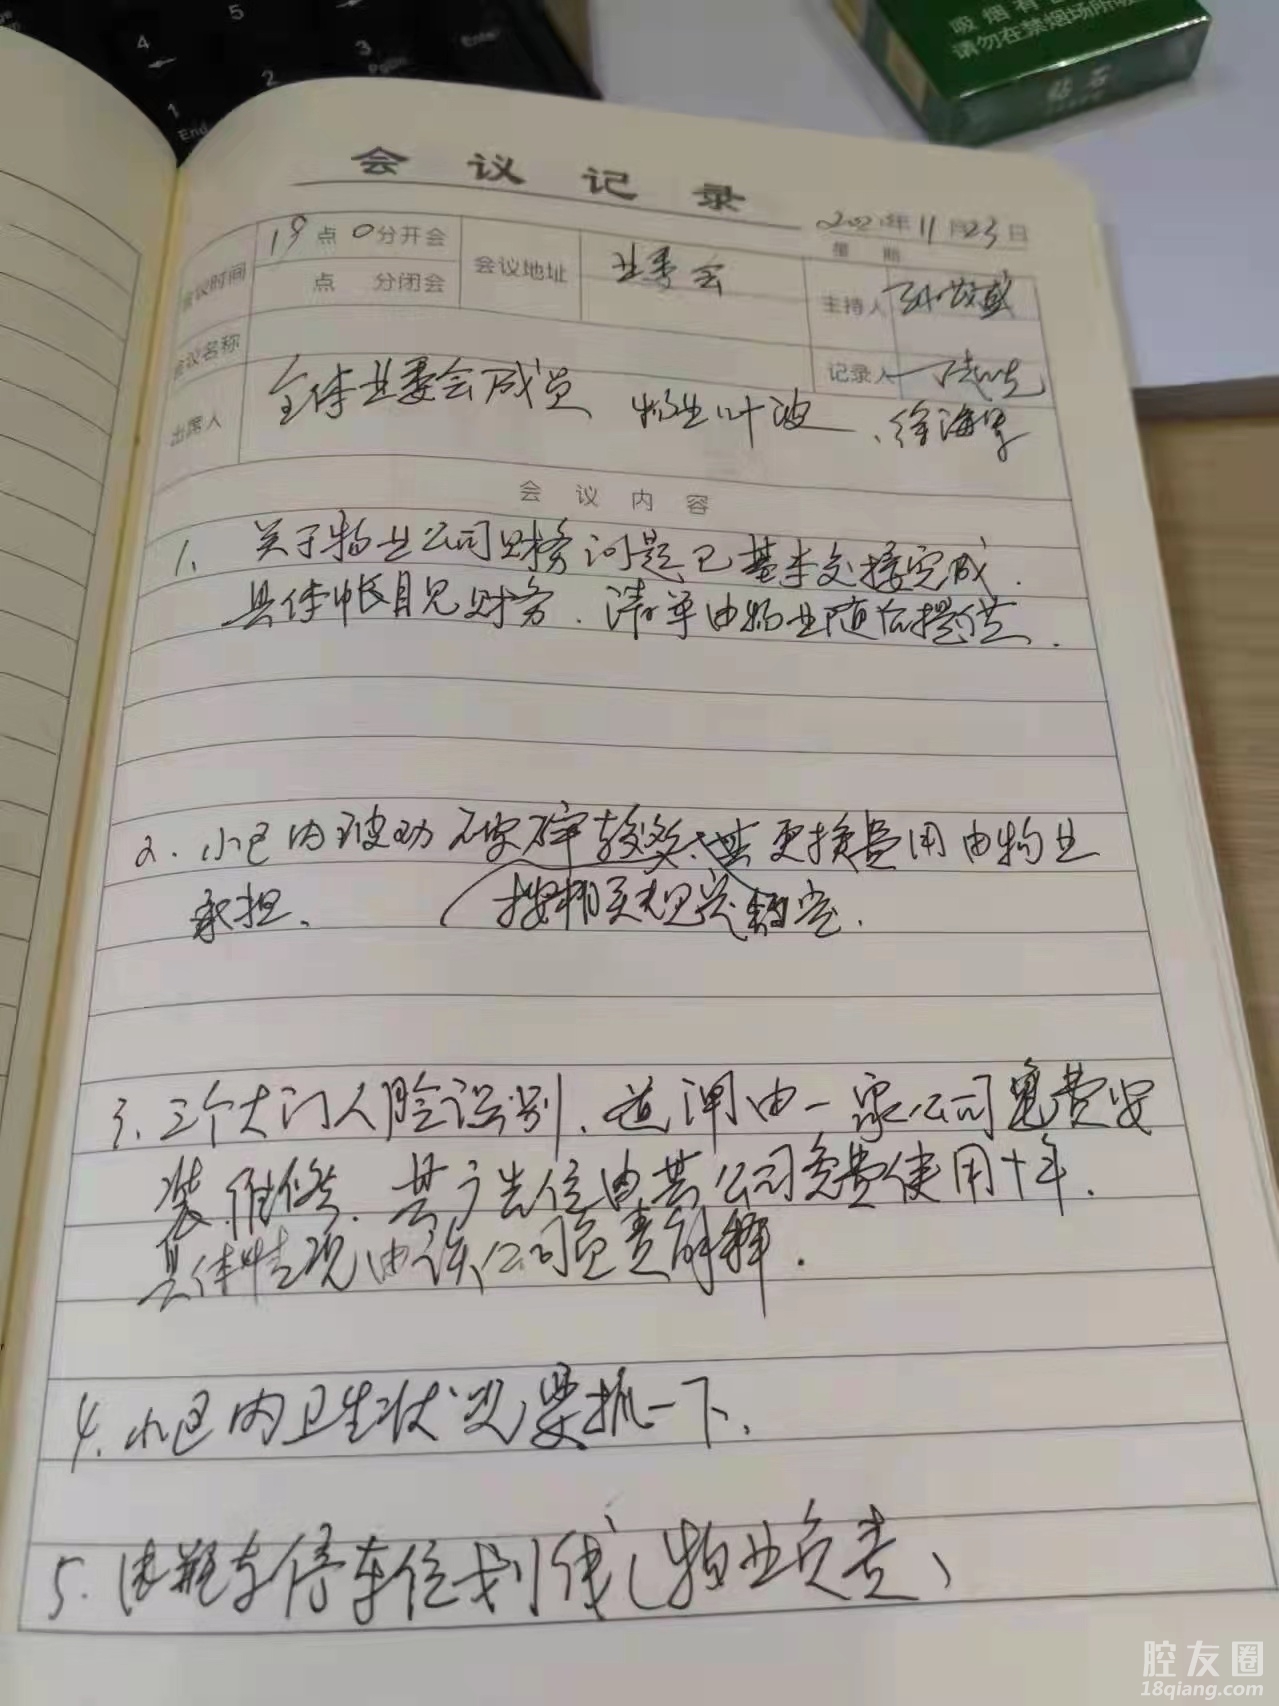 5
4
3
PgDn
Enter
2
1
End
请勿在禁烟场所吸
钻石
会议记录
2021年11月23日
星期
会议时间 19点0分开会 会议地址 业委会 主持人
点 分闭会
会议名称 记录人
出席人 全体业委会成员 物业叶波、徐海
会议内容
1. 关于物业公司财务问题已基本交接完成.
具体帐目见财务.清单由物业随后提供.
2. 小区内玻动 较多、其更换费用由物业
承担、 (按相关规定 .
3. 三个大门人脸识别、道闸由一家公司免费安
装.维修.其广告位由其公司免费使用十年.
具体情况由该公司负责解释.
4. 小区内卫生状况要抓一下、
5. 电瓶车停车位划线(物业负责)
腔友圈
18qiang.com